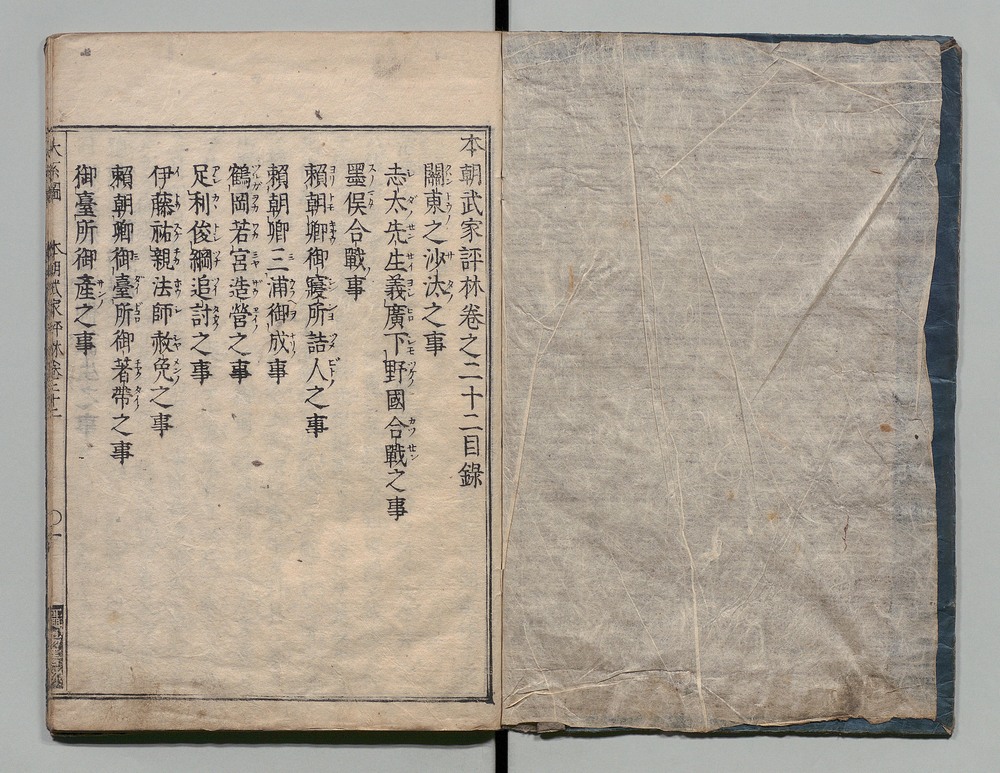 本朝武家評林卷之二十二目錄
關東之沙汰之事
志太先生義廣下野國合戰之事
墨俣合戰事
賴朝卿御寢所詰人之事
賴朝卿三浦御成事
鶴岡若宮造營之事
足利俊綱追討之事
伊藤祐親法師赦免之事
賴朝卿御臺所御著帶之事
御臺所御產之事
大系圖 本朝武家評林卷二十二 〇一